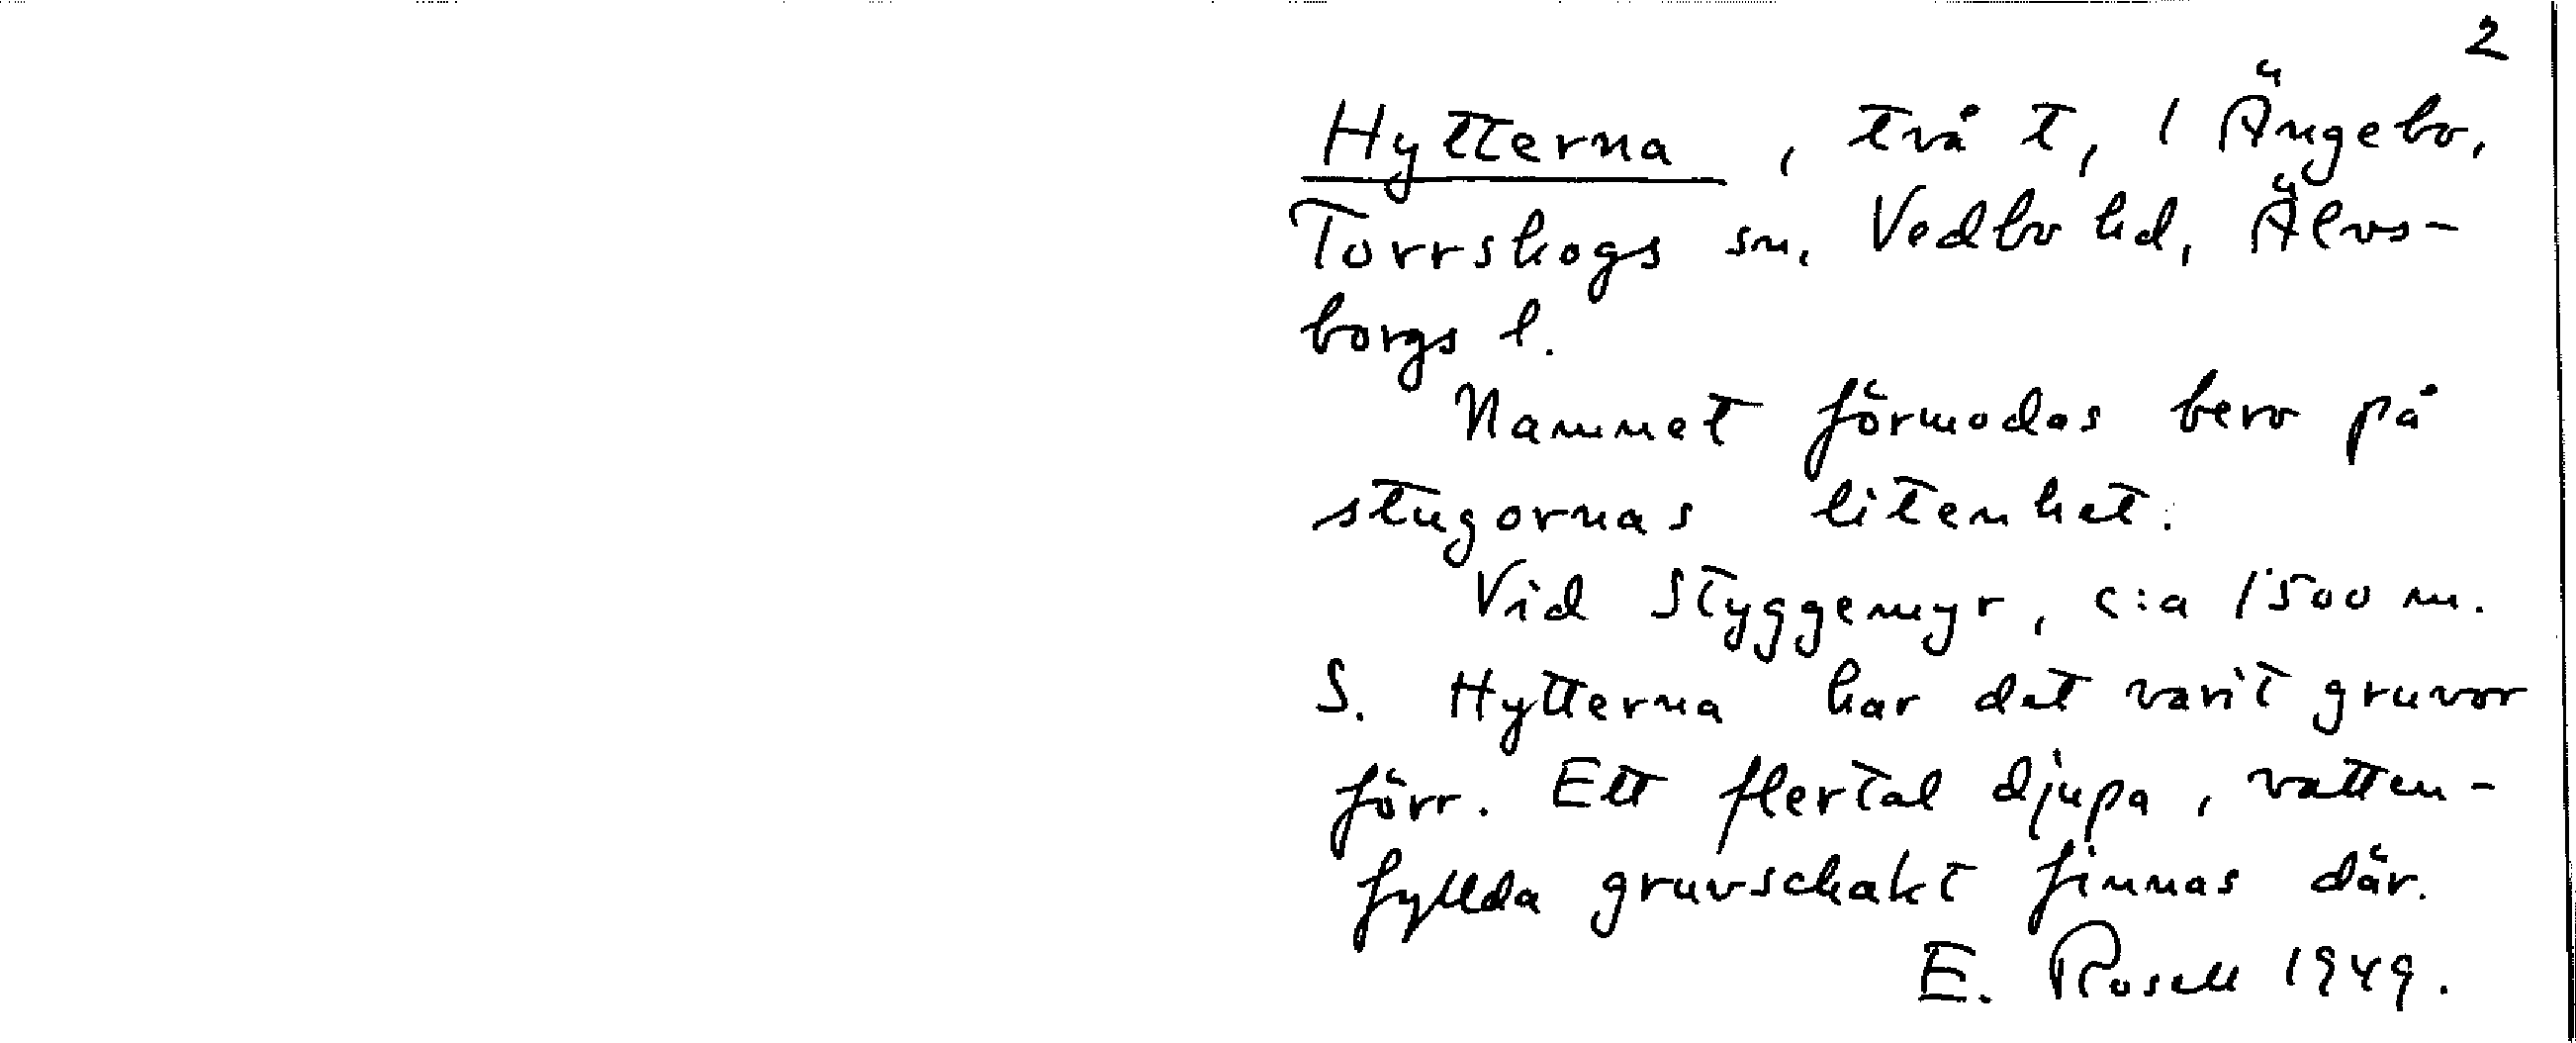 2
Hytterna, två t, 1 Ängebo,
Torrskogs sn, Vedbo hd, Älvs-
borgs l.
Namnet förmodas bero på
stugornas litenhet.
Vid Styggemyr, c:a 1500 m.
S. Hytterna har det varit gruvor
förr. Ett flertal djupa, vatten-
fyllda gruvschakt finnas där.
E. Rosell 1949.